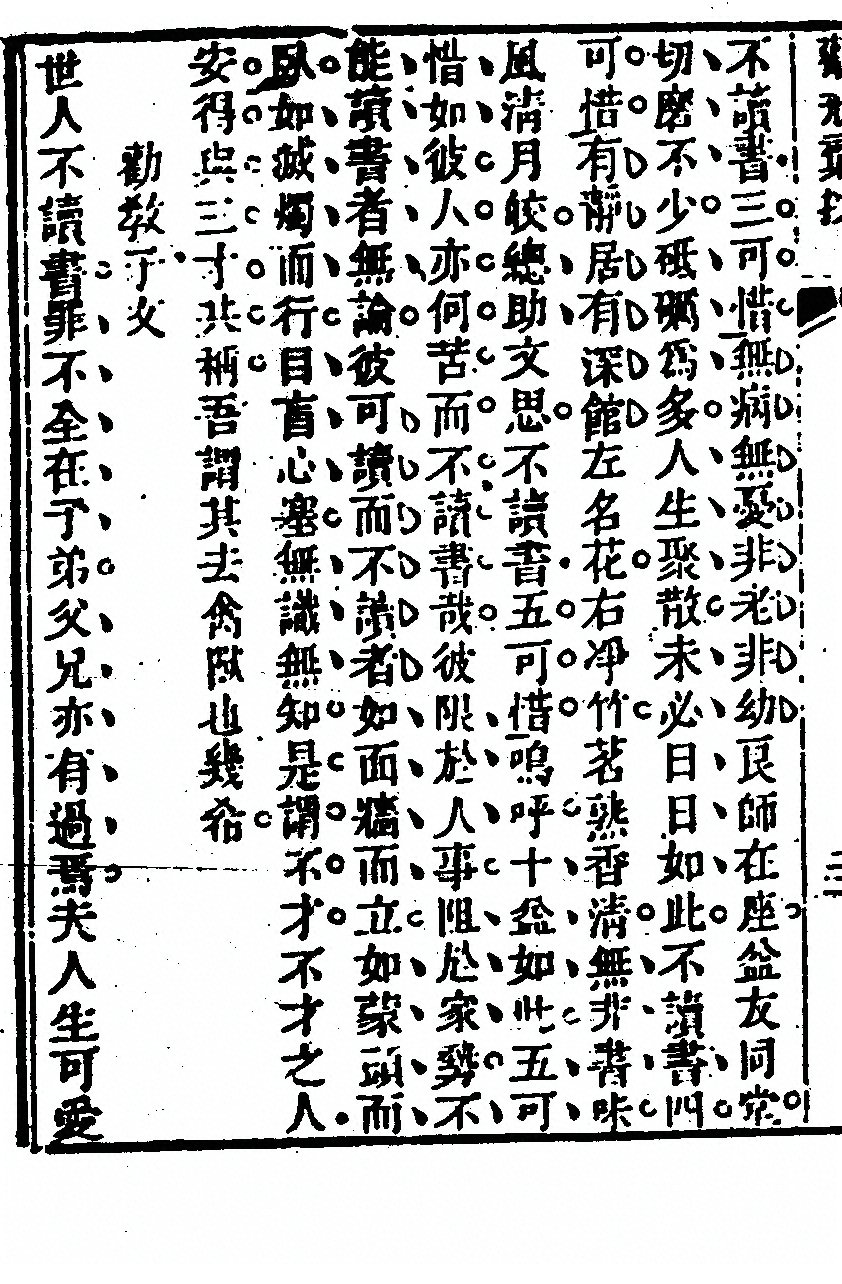 不讀書三可惜無病無憂非老非幼良師在座益友同常
切磨不少砥礪爲多人生聚散未必日日如此不讀書四
可惜有靜居有深館左名花右淨竹茗熟香清無非書味
風清月皎總助文思不讀書五可惜嗚呼十益如此五可
惜如彼人亦何苦而不讀書哉彼限於人事阻於家勢不
能讀書者無論彼可讀而不讀者如面牆而立如蒙頭而
臥如滅燭而行目盲心塞無識無知是謂不才不才之人
安得與三才共稱吾謂其去禽獸也幾希
勸教子文
世人不讀書罪不全在子弟父兄亦有過焉夫人生可愛